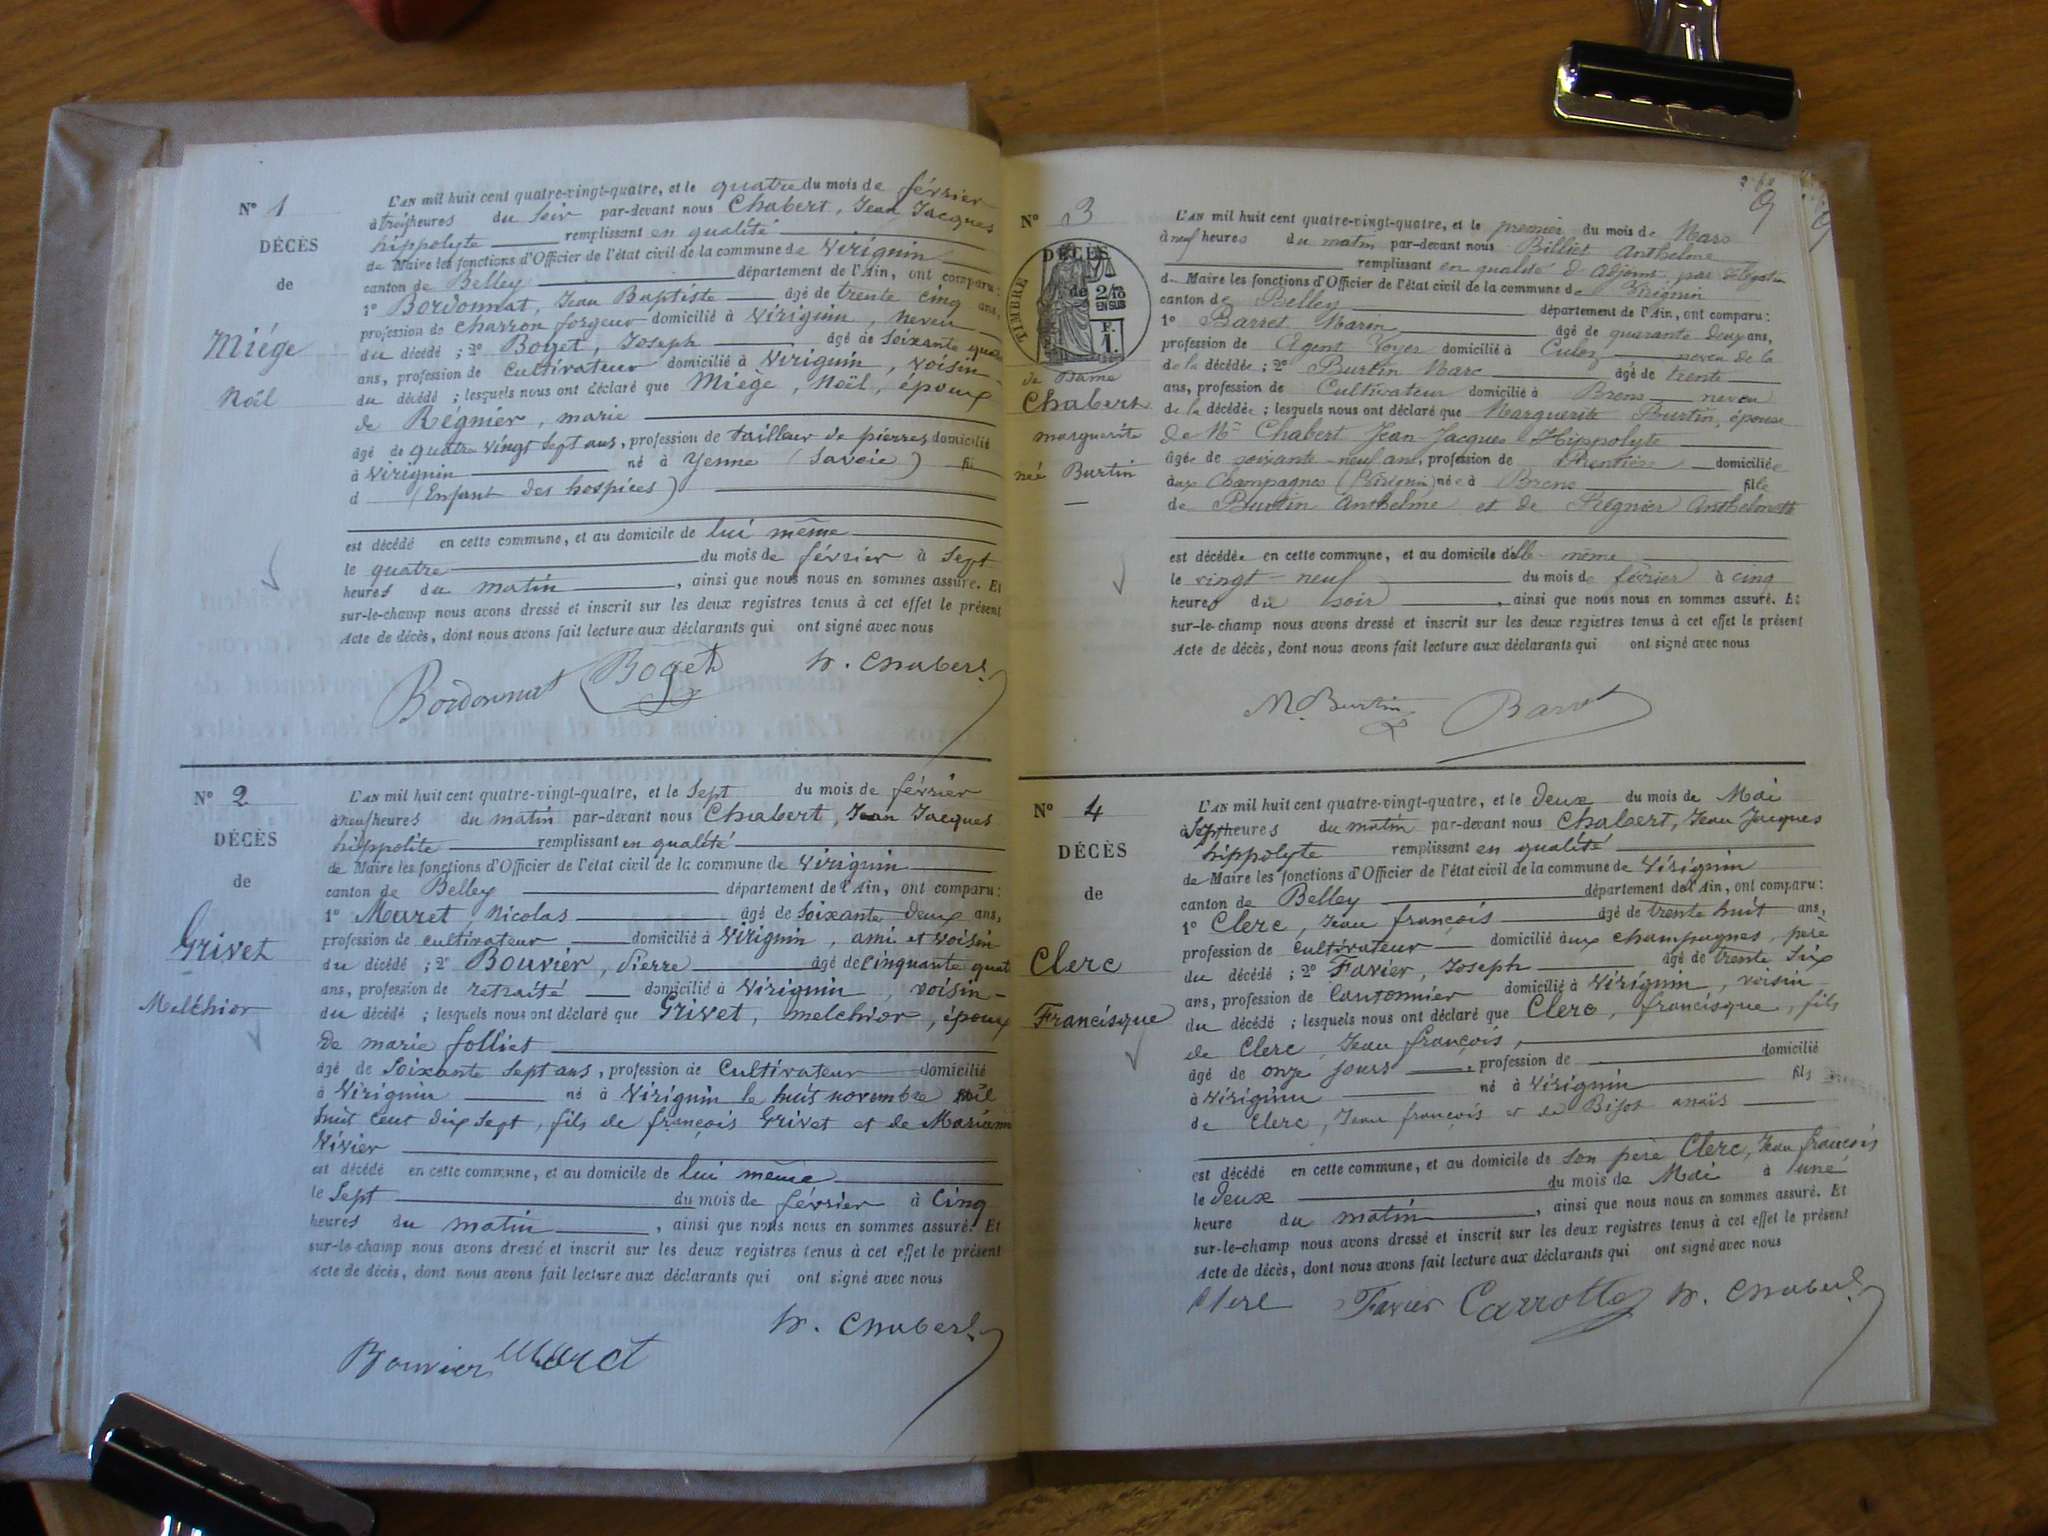 N° 1
DÉCÈS
de
Miége
Noël
L'AN mil huit cent quatre-vingt-quatre, et le quatre du mois de février
à trois heures du soir par-devant nous Chabert, Jean Jacques
hippolyte remplissant en qualité
de Maire les fonctions d'Officier de l'état civil de la commune de Virignin
canton de Belley département de l'Ain, ont comparu :
1° Bordonnat, Jean Baptiste âgé de trente cinq ans,
profession de charron forgeur domicilié à Virignin, neveu
du décédé ; 2° Boget, Joseph âgé de soixante quatre
ans, profession de cultivateur domicilié à Virignin, voisin
du décédé ; lesquels nous ont déclaré que Miège, Noël, époux
de Régnier, marie
âgé de quatre vingt sept ans, profession de tailleur de pierres domicilié
à Virignin né à Yenne (Savoie) fil
d (Enfant des hospices)
est décédé en cette commune, et au domicile de lui même
le quatre du mois de février à sept
heures du matin, ainsi que nous nous en sommes assuré. Et
sur-le-champ nous avons dressé et inscrit sur les deux registres tenus à cet effet le présent
Acte de décès, dont nous avons fait lecture aux déclarants qui ont signé avec nous
Bordonnat Boget h. Chabert
N° 2
DÉCÈS
de
Grivet
Melchior
L'AN mil huit cent quatre-vingt-quatre, et le sept du mois de février
à neuf heures du matin par-devant nous Chabert, Jean Jacques
hippolite remplissant en qualité
de Maire les fonctions d'Officier de l'état civil de la commune de Virignin
canton de Belley département de l'Ain, ont comparu :
1° Muret, Nicolas âgé de soixante deux ans,
profession de cultivateur domicilié à Virignin, ami et voisin
du décédé ; 2° Bouvier, Pierre âgé de cinquante quat
ans, profession de retraité domicilié à Virignin, voisin
du décédé ; lesquels nous ont déclaré que Grivet, melchior, époux
de marie folliet
âgé de soixante sept ans, profession de cultivateur domicilié
à Virignin né à Virignin le huit novembre mil
huit cent dix sept, fils de françois Grivet et de Mariann
Vivier
est décédé en cette commune, et au domicile de lui même
le sept du mois de février à cinq
heures du matin, ainsi que nous nous en sommes assuré. Et
sur-le-champ nous avons dressé et inscrit sur les deux registres tenus à cet effet le présent
Acte de décès, dont nous avons fait lecture aux déclarants qui ont signé avec nous
h. Chabert
Bouvier Muret
9
N° 3
DÉCÈS
de
TIMBRE
2/10
EN SUS
F.
1.
de Dame
Chabert
marguerite
née Burtin
L'AN mil huit cent quatre-vingt-quatre, et le premier du mois de Mars
à neuf heures du matin par-devant nous Billiet Anthelme
remplissant en qualité d'adjoint par délégation
de Maire les fonctions d'Officier de l'état civil de la commune de Virignin
canton de Belley département de l'Ain, ont comparu :
1° Barret Marin âgé de quarante deux ans,
profession de Agent Voyer domicilié à Culoz neveu de la
de la décédée ; 2° Burtin Marc âgé de trente
ans, profession de Cultivateur domicilié à Brens neveu
de la décédée ; lesquels nous ont déclaré que Marguerite Burtin, épouse
de Mr Chabert Jean-Jacques Hippolyte
âgée de soixante-neuf ans, profession de Rentière domiciliée
aux Champagnes (Virignin) née à Brens fille
de Burtin Anthelme et de Régnier Anthelmette
est décédée en cette commune, et au domicile d'elle-même
le vingt-neuf du mois de février à cinq
heures du soir, ainsi que nous nous en sommes assuré. Et
sur-le-champ nous avons dressé et inscrit sur les deux registres tenus à cet effet le présent
Acte de décès, dont nous avons fait lecture aux déclarants qui ont signé avec nous
M. Burtin Barret
N° 4
DÉCÈS
de
Clerc
Francisque
L'AN mil huit cent quatre-vingt-quatre, et le deux du mois de Mai
à sept heures du matin par-devant nous Chabert, Jean Jacques
hippolyte remplissant en qualité
de Maire les fonctions d'Officier de l'état civil de la commune de Virignin
canton de Belley département de l'Ain, ont comparu :
1° Clerc, Jean françois âgé de trente huit ans,
profession de cultivateur domicilié aux champagnes, père
du décédé ; 2° Favier, Joseph âgé de trente six
ans, profession de Cantonnier domicilié à Virignin, voisin
du décédé ; lesquels nous ont déclaré que Clerc, francisque, fils
de Clerc, Jean françois,
âgé de onze jours, profession de domicilié
à Virignin né à Virignin fils
de Clerc, Jean françois et de Bijot anaïs
est décédé en cette commune, et au domicile de son père Clerc, Jean françois
le deux du mois de Mai à une
heure du matin, ainsi que nous nous en sommes assuré. Et
sur-le-champ nous avons dressé et inscrit sur les deux registres tenus à cet effet le présent
Acte de décès, dont nous avons fait lecture aux déclarants qui ont signé avec nous
Clerc Favier Carrotte h. Chabert